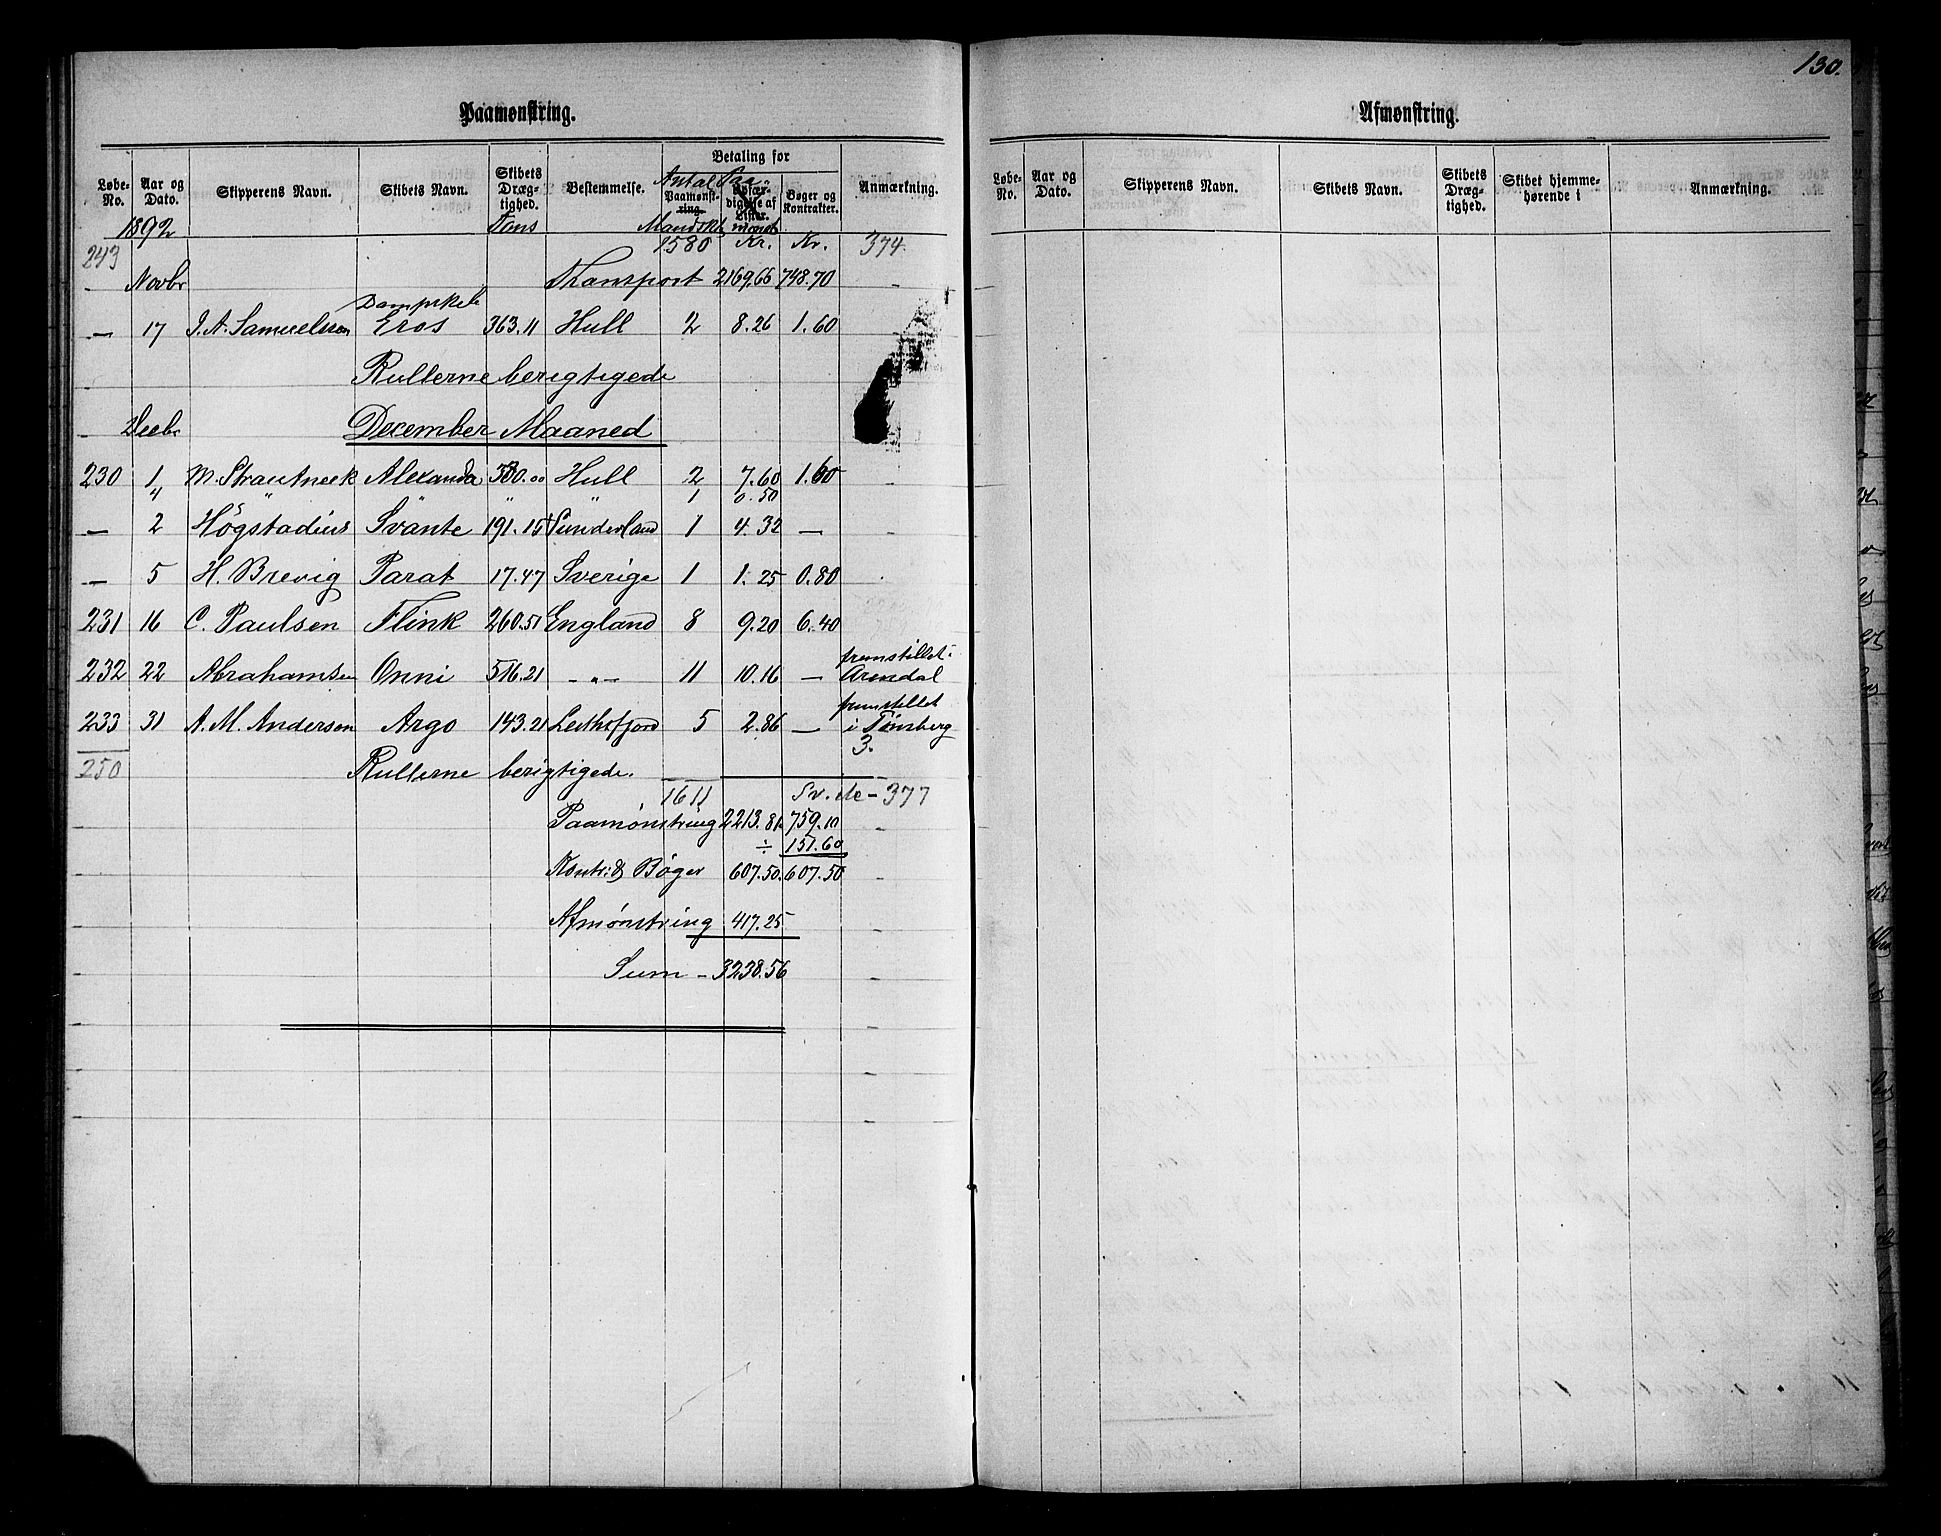 130.
Paamønstring.
Løbe-No. Aar og Dato. Skipperens Navn. Skibets Navn. Skibets Dræg-tighed. Bestemmelse. Betaling for Paamønst-ring. Udfær-digelse af Lister. Bøger og Kontrakter. Anmærkning.
1892 Tons Antal Mandsk. Paa-mønst.
243 1580 Kr. Kr. 374.
Novbr Transport 2169.66 748.70
Dampskib
— 17 J. A. Samuelsson Eros 363.11 Hull 2 8.26 1.60
Rullerne berigtigede
Decbr December Maaned
230 1 M. Strautneek Alexanda 380.00 Hull 2 7.60 1.60
4 " " " 1 0.50
— 2 Högstadius Svänte 191.15 Sunderland 1 4.32 —
— 5 H. Brevig Parat 17.47 Sverige 1 1.25 0.80
231 16 C. Paulsen Flink 260.51 England 8 9.20 6.40
232 22 Abrahamsen Onni 516.21 -"- 11 10.16 — fremstillet i Arendal
233 31 A. M. Andersen Argo 143.21 Leithsfjord 5 2.86 — fremstillet i Tønsberg
3.
250 Rullerne berigtigede.
1611 377
Paamønstring 2213.81 759.10
÷ 151.60
Kontr: & Bøger 607.50. 607.50
Afmønstring 417.25
Sum - 3238.56
Afmønstring.
Løbe-No. Aar og Dato. Skipperens Navn. Skibets Navn. Skibets Dræg-tighed. Skibet hjemme-hørende i Anmærkning.